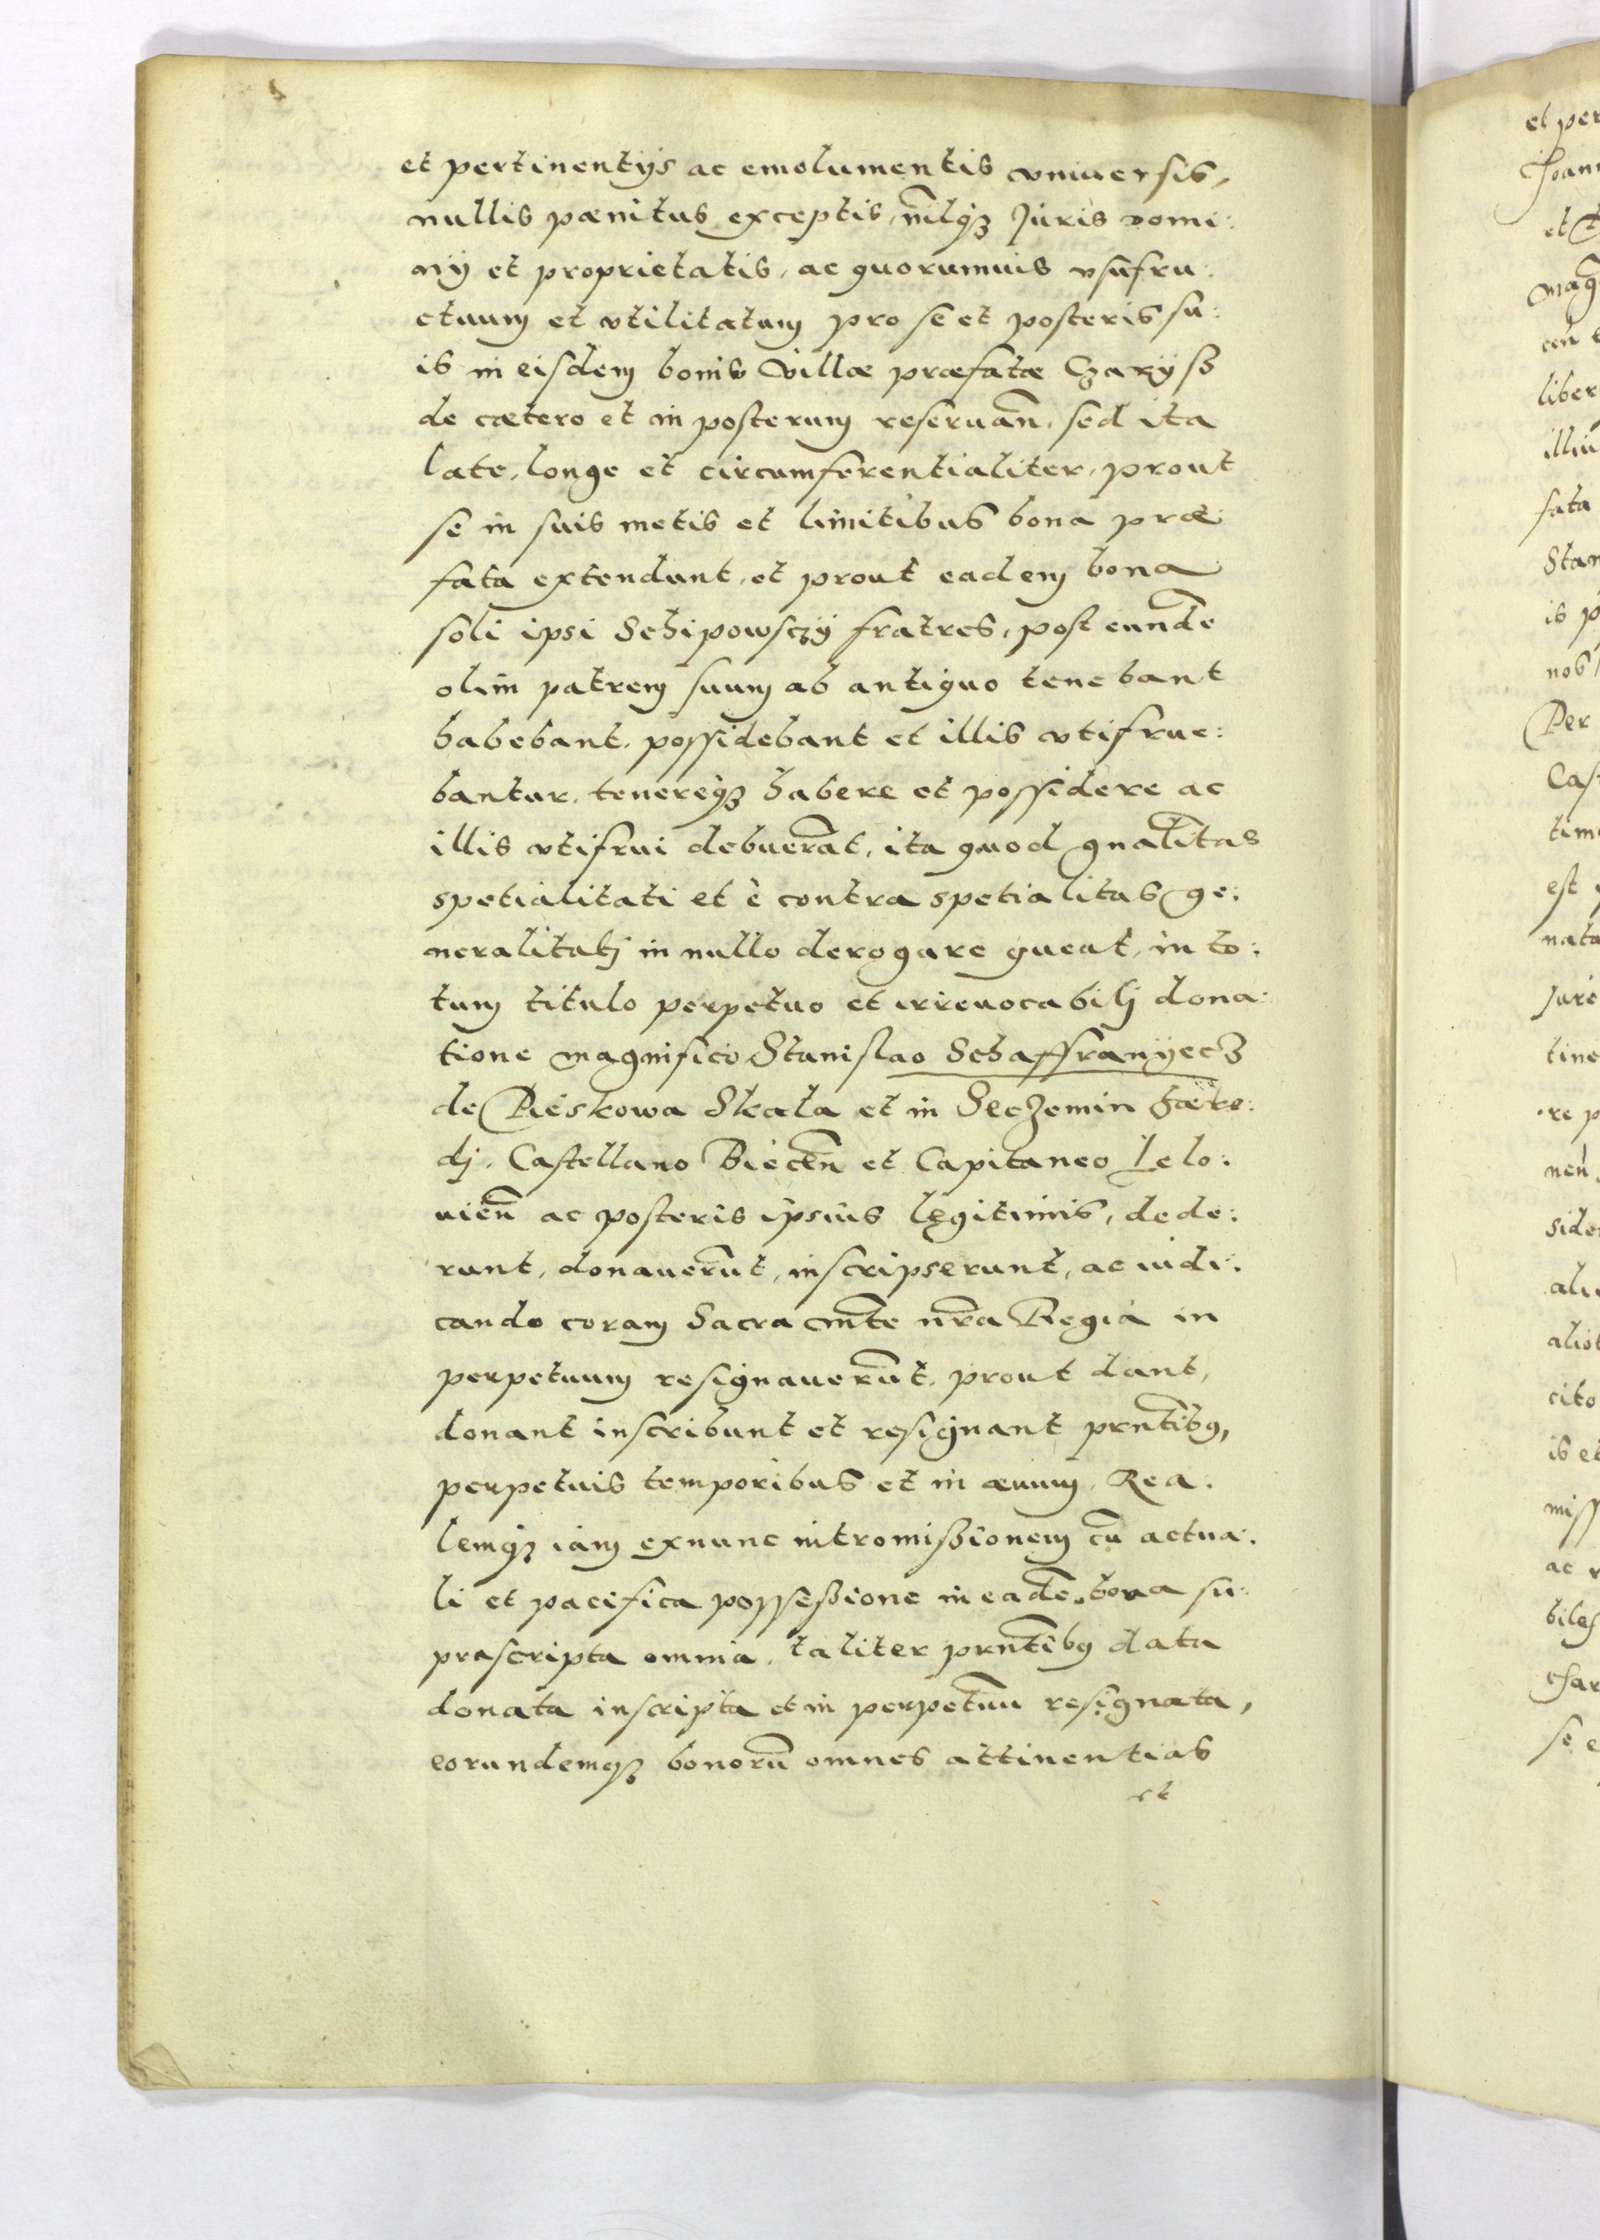 et pertinentijs ac emolumentis vniuersis,
nullis pænitus exceptis, nīlqꝫ Juris domi:
nij et proprietatis, ac quorumuis vsufru:
ctuum et vtilitatum pro se et posteris su:
is in eisdem bonis Villæ præfatæ Czaryss
de cætero et in posterum reseruan̄, sed ita
late, longe et circumferentialiter, prout
se in suis metis et limitibus bona præ:
fata extendunt, et prout eadem bona
soli ipsi Schipowsczÿ fratres, post eunde̅
olim patrem suum ab antiquo tenebant
habebant, possidebant et illis vtifrue:
bantur, tenereqꝫ habere et possidere ac
illis vtifrui debuera̅t, ita quod gnal̅itas
spetialitati et è contra spetialitas ge:
neralitatj in nullo derogare queat, in to:
tum titulo perpetuo et irreuocabilj dona:
tione magnifico Stanislao Schaffranÿecz
de Pieskowa Skala et in Seczemin hære:
dj, Castellano Biecen̅ et Capitaneo Lelo:
uien̅ ac posteris ipsius legitimis, dede:
runt, donaueru̅t, inscripserunt, ac iudi:
cando coram Sacra mte̅ nr̅a Regia in
perpetuum resignaueru̅t, prout dant,
donant inscribunt et resignant prnt̅ibꝯ,
perpetuis temporibus et in æuum, Rea:
lemqꝫ iam exnunc intromißionem cu̅ actua:
li et pacifica possessione in eade̅ bona su:
prascripta omnia, taliter prnt̅ibꝯ data
donata inscripta et in perpetuu̅ resignata,
eorundemqꝫ bonoru̅ omnes attinentias
et
et per
Joann
liber
fata
nos
Per
Cas
tim
est
nata
Jure
tine
re p
neu
side
cito
is et
miss
biles
se e